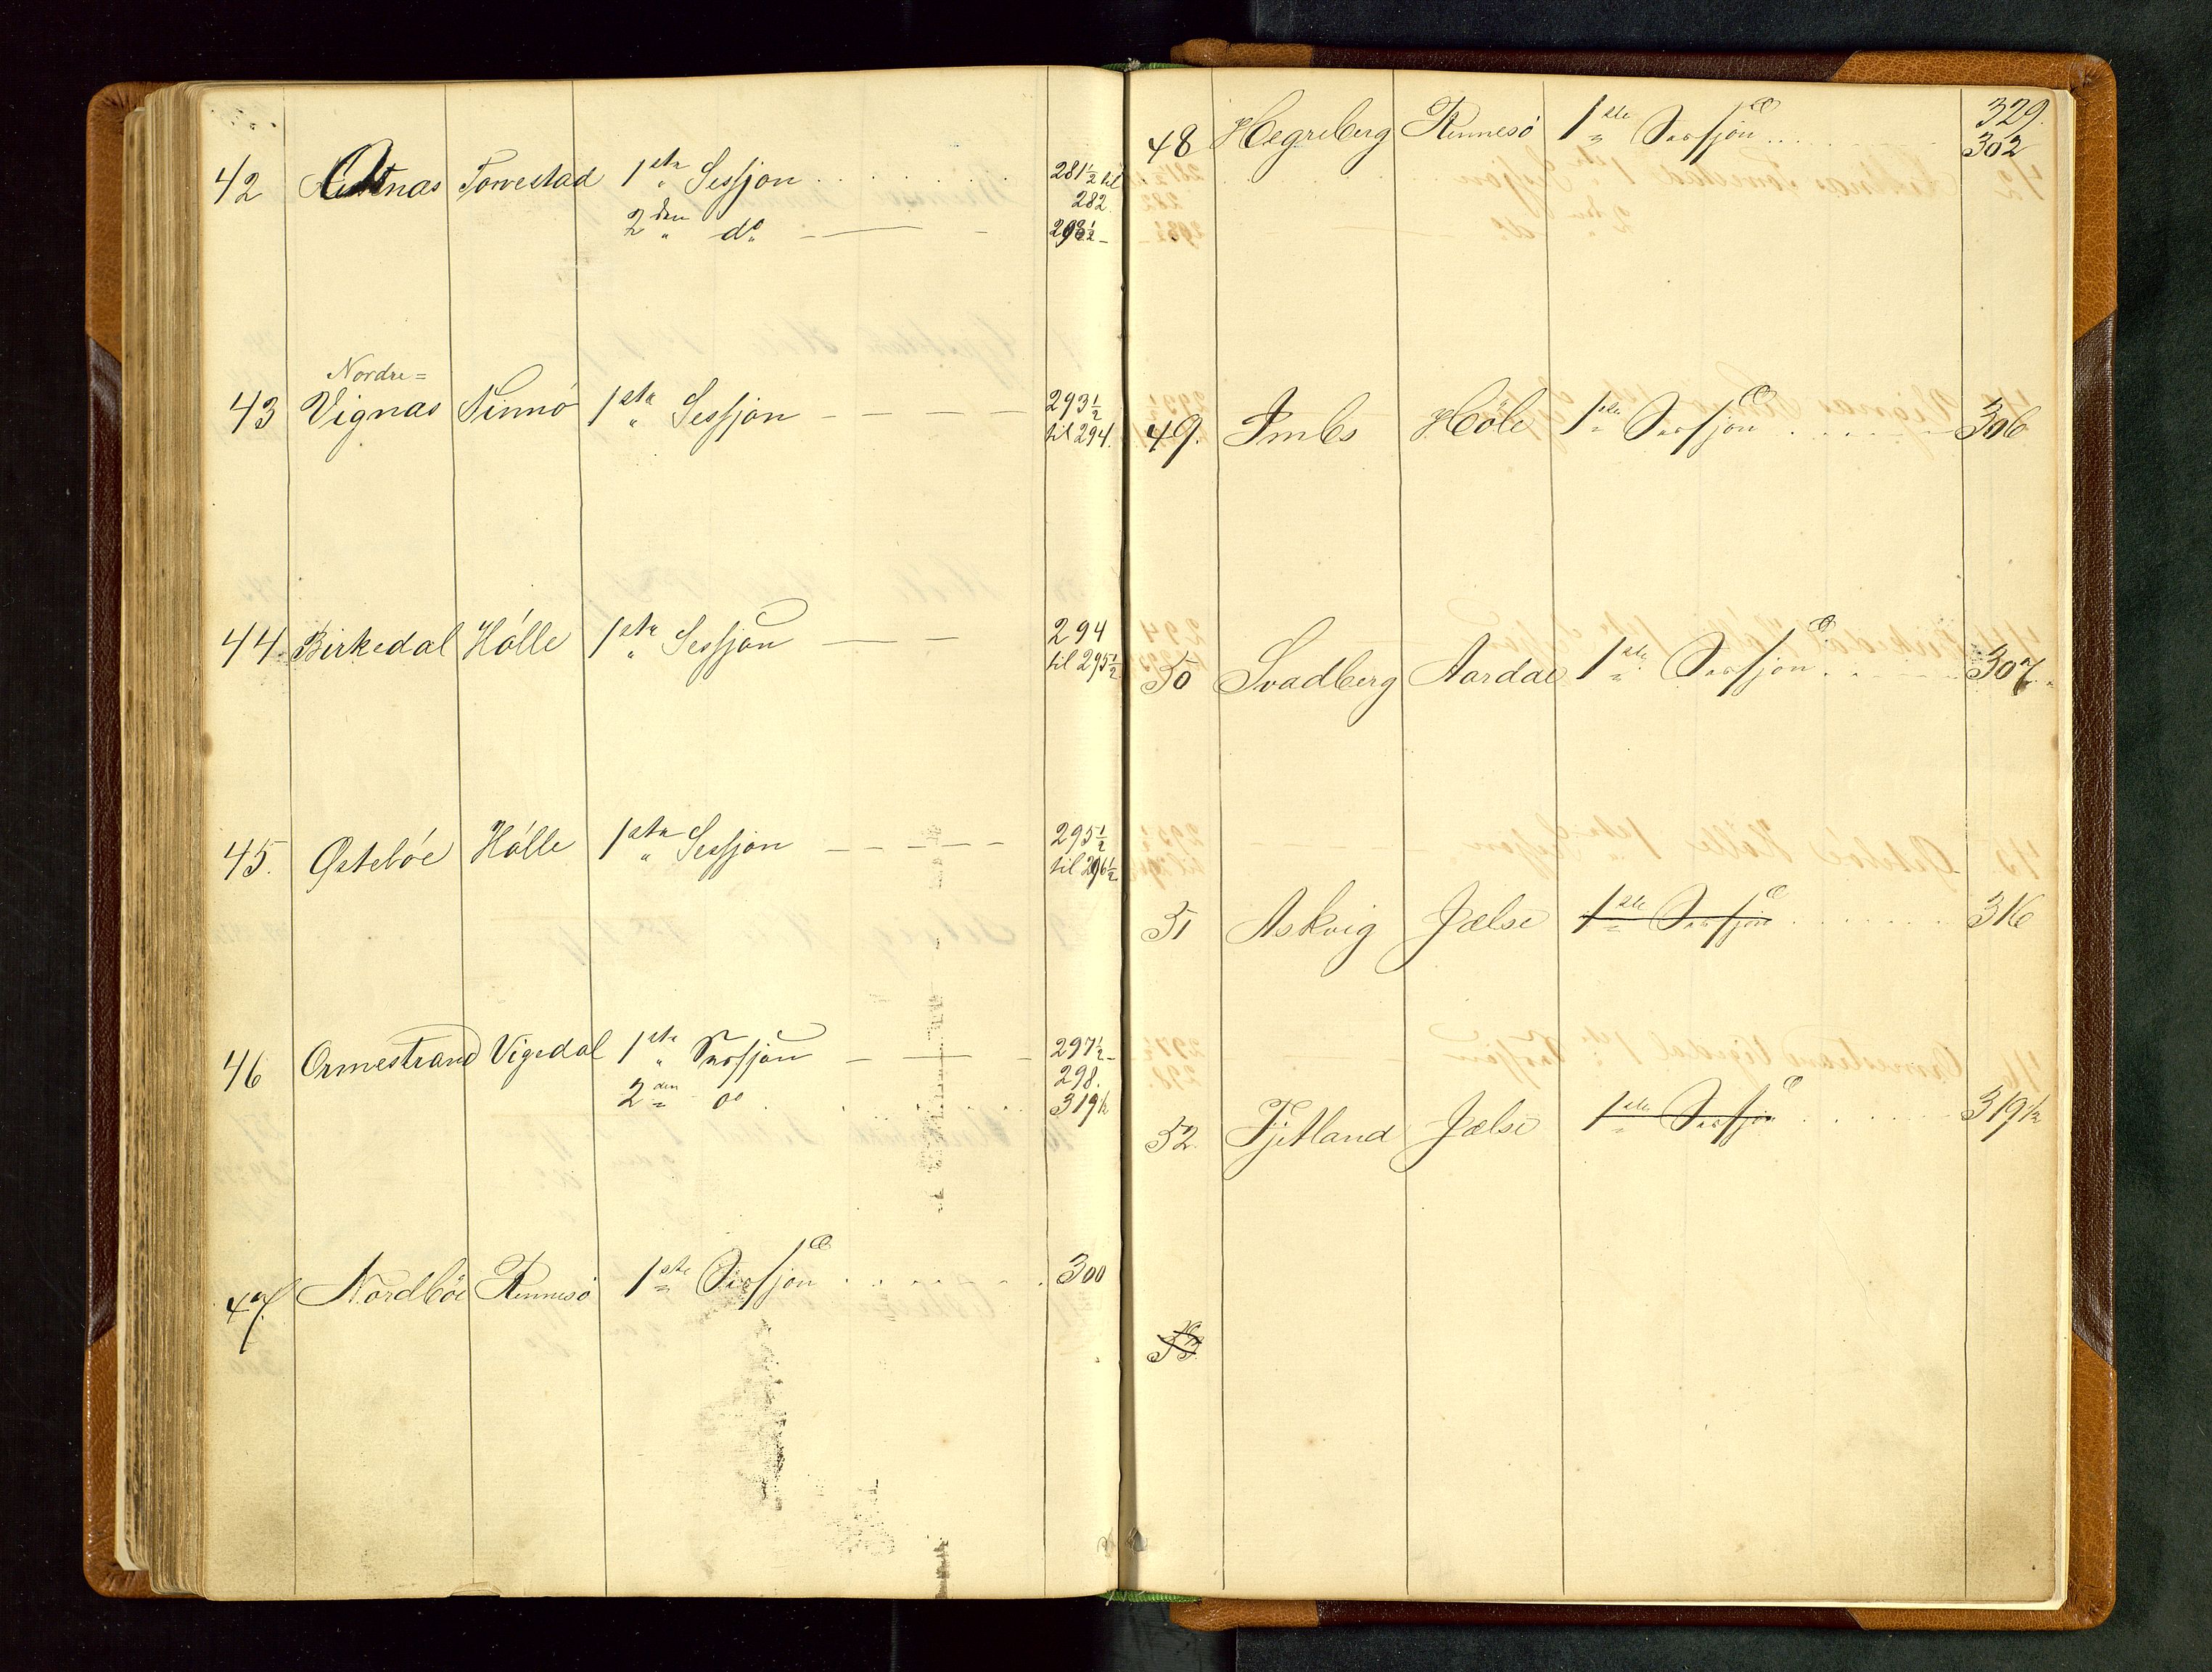 42 Torvestad 1ste Sessjon . . . . . . . 281½ til
282.
2den do — — 293½ –
Nordre=
43 Vignæs Finnö 1ste Sessjon – – – – 293½
til 294.
44. Birkedal Hölle 1ste Sessjon — — 294
til 295½
45. Østeböe Hölle 1ste Sessjon – – – – – 295½
til 296½
46 Ormestrand Vigedal 1ste Sessjon – — – 297½ –
298.
2den do . . . . . 319½
47. Nordböe Rennesö 1ste Sessjon . . . . . . 300
329.
48 Hegreberg Rennesö 1ste Sessjon . . . . . 302
49. Imbs Höle 1ste Sessjon . . . . . 306
50 Svadberg Aardal 1ste Sessjon . . . . . 307.
51 Askvig Jælse 1ste Sessjon . . . . . . 316
52. Fjetland Jælse 1ste Sessjon . . . . . 319½
53